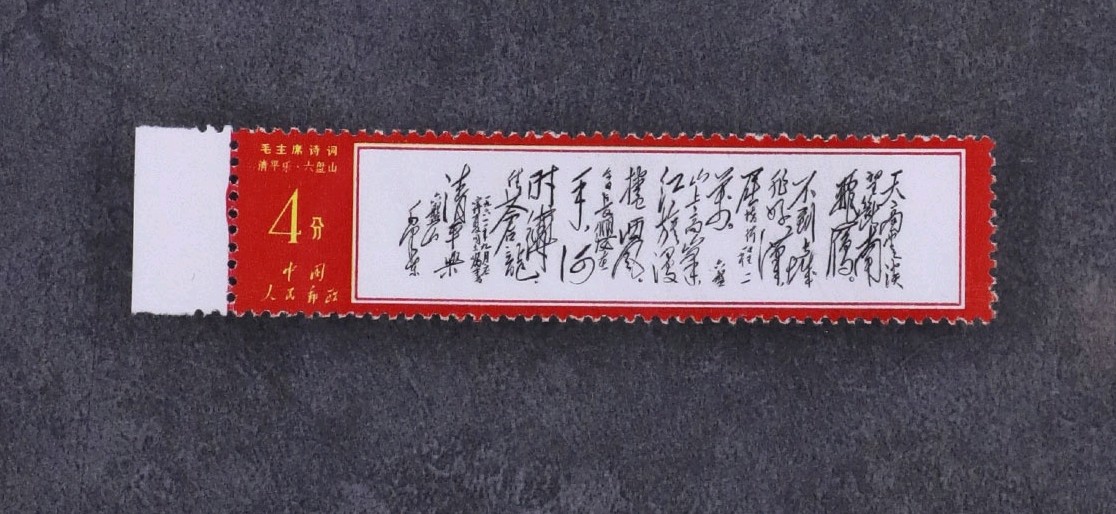 毛主席诗词
清平乐·六盘山
4分
中国
人民邮政
天高云淡
望断南
飞雁。
不到长城
非好汉。
屈指行程二
万。
六盘
山上高峰
红旗漫
卷西风。
今日长缨在
手，何
时缚
住苍龍。
清平乐
六盘山
毛泽东